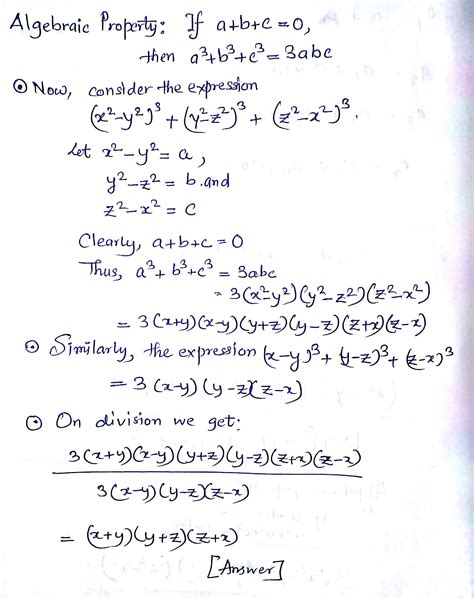 Algebraic Property: If a+b+c=0,
then a³+b³+c³=3abc
⊙ Now, consider the expression
(x²-y²)³+(y²-z²)³+(z²-x²)³.
Let x²-y²=a,
y²-z²=b.and
z²-x²=c
Clearly, a+b+c=0
Thus, a³+b³+c³=3abc
=3(x²-y²)(y²-z²)(z²-x²)
=3(x+y)(x-y)(y+z)(y-z)(z+x)(z-x)
⊙ Similarly, the expression (x-y)³+(y-z)³+(z-x)³
=3(x-y)(y-z)(z-x)
⊙ On division we get:
3(x+y)(x-y)(y+z)(y-z)(z+x)(z-x)
3(x-y)(y-z)(z-x)
=(x+y)(y+z)(z+x)
[Answer]